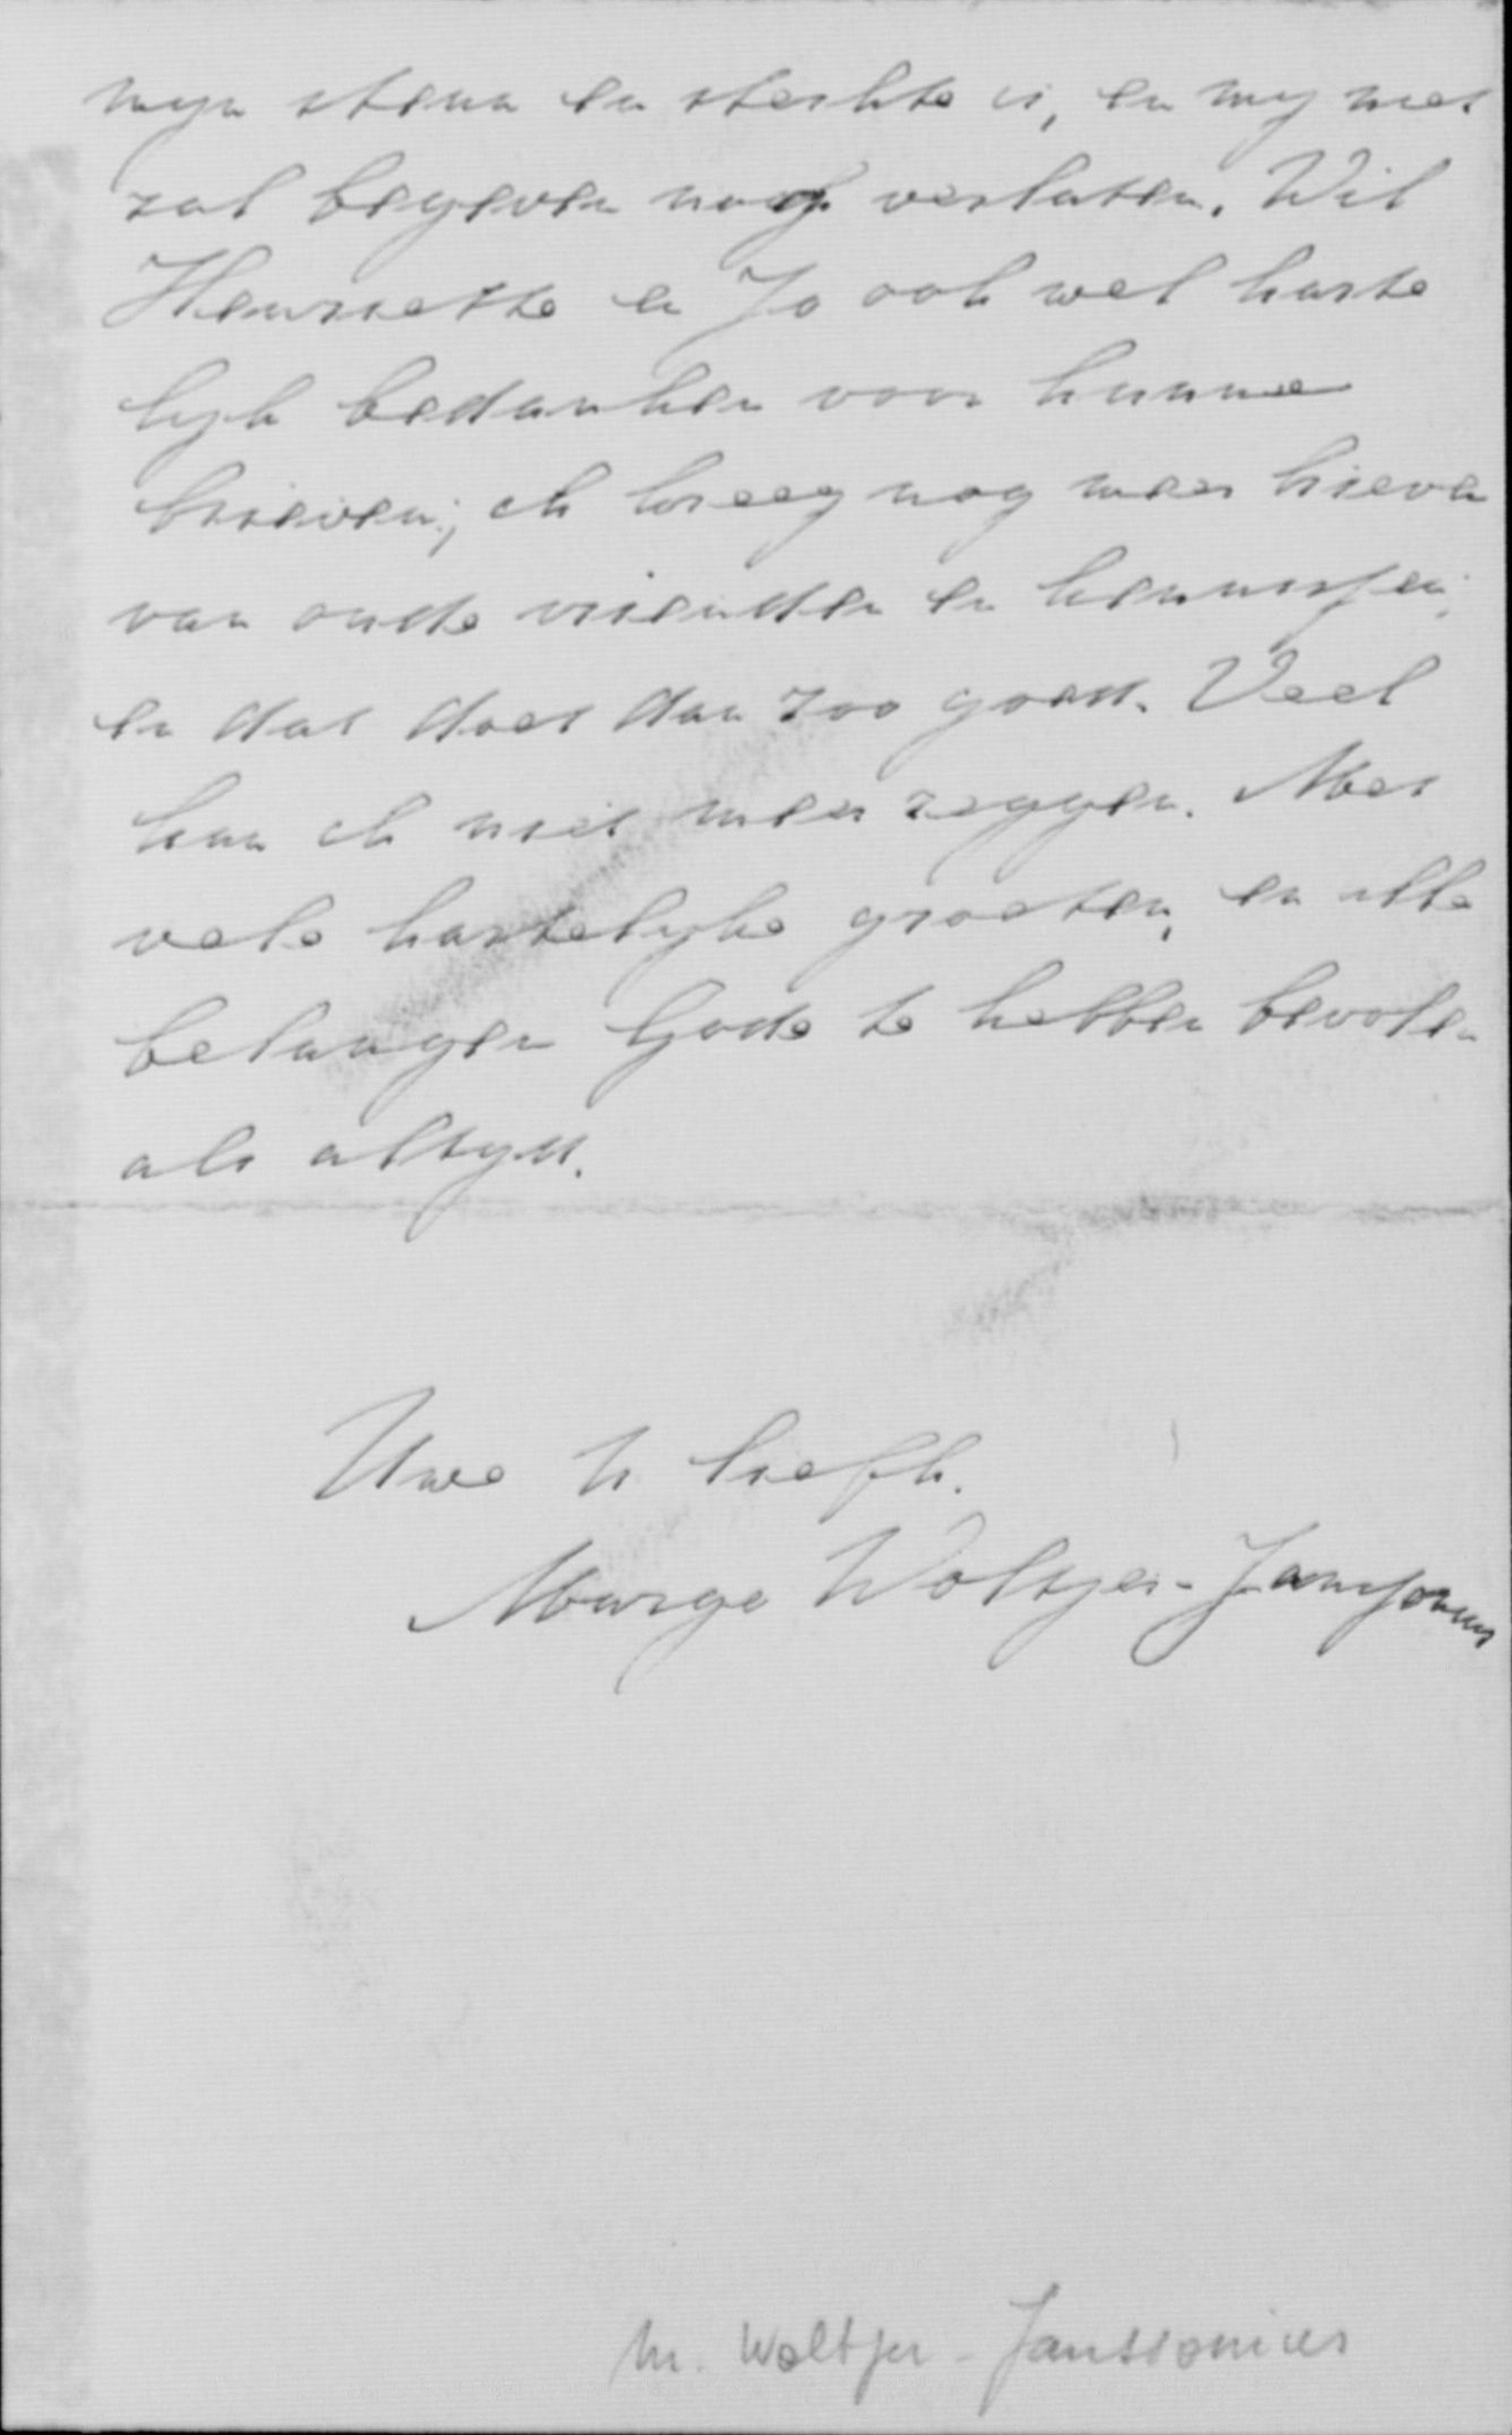 mijn steun en sterkte is, en mij niet
zal begeven noch verlaten. Wil
Henriette en Jo ook wel harte
lijk bedanken voor hunne
brieven; ik kreeg nog meer brieven
van oude vrienden en kennissen;
en dat doet dan zoo goed. Veel
kan ik niet meer zeggen. Met
vele hartelijke groeten, en alle
belangen Gode te hebben bevolen
als altijd.
Uwe h. liefh.
Marge Woltjer-Janssonius
M. Woltjer - Janssonius